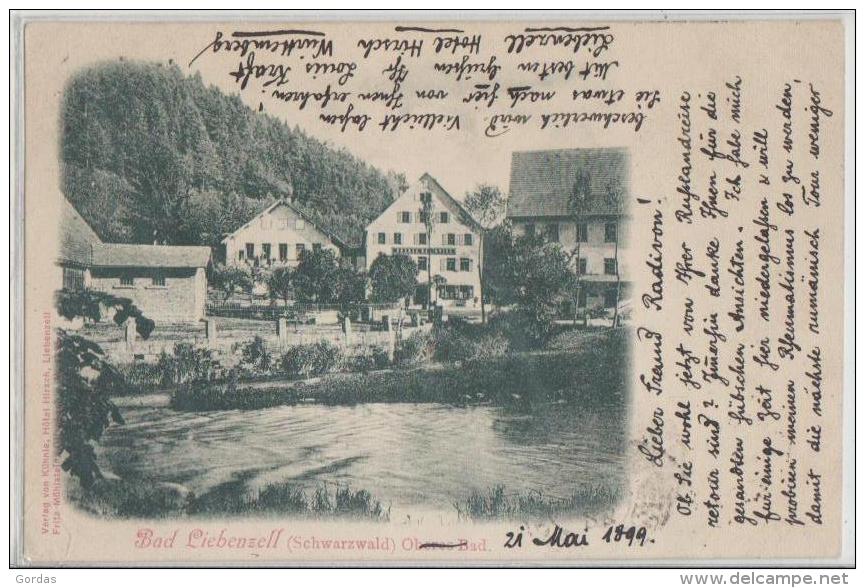 Lieber Freund Radivon!
Ob Sie wohl jetzt von Ihrer Rußlandreise
retour sind? Immerhin danke Ihnen für die
gesandten hübschen Ansichten. Ich habe mich
für einige Zeit hier niedergelassen & will
probiren meinen Rheumatismus los zu werden,
damit die nächste rumänisch Tour weniger
beschwerlich wird. Vielleicht lassen
Sie etwas nach hier von Ihnen erfahren!
Mit besten Grüssen Ihr Louis Krafft
Liebenzell Hotel Hirsch Württemberg
21 Mai 1899.
Bad Liebenzell (Schwarzwald) Oberes Bad.
Verlag von Kühnle, Hôtel Hirsch, Liebenzell
Gordas
delcampe.net